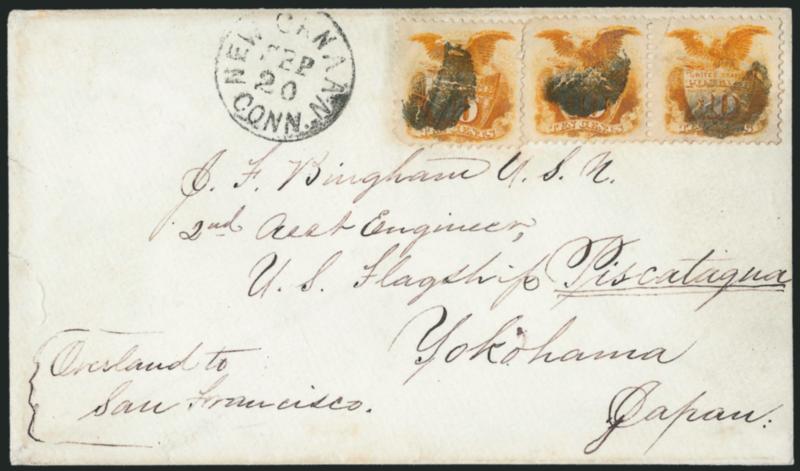 NEW CANAAN
SEP
20
CONN.
UNITED STATES
10
TEN CENTS
TEN CENTS
TEN CENTS
J. F. Bingham U. S. N.
2nd Asst Engineer,
U. S. Flagship Piscataqua
Yokohama
Japan.
Overland to
San Francisco.